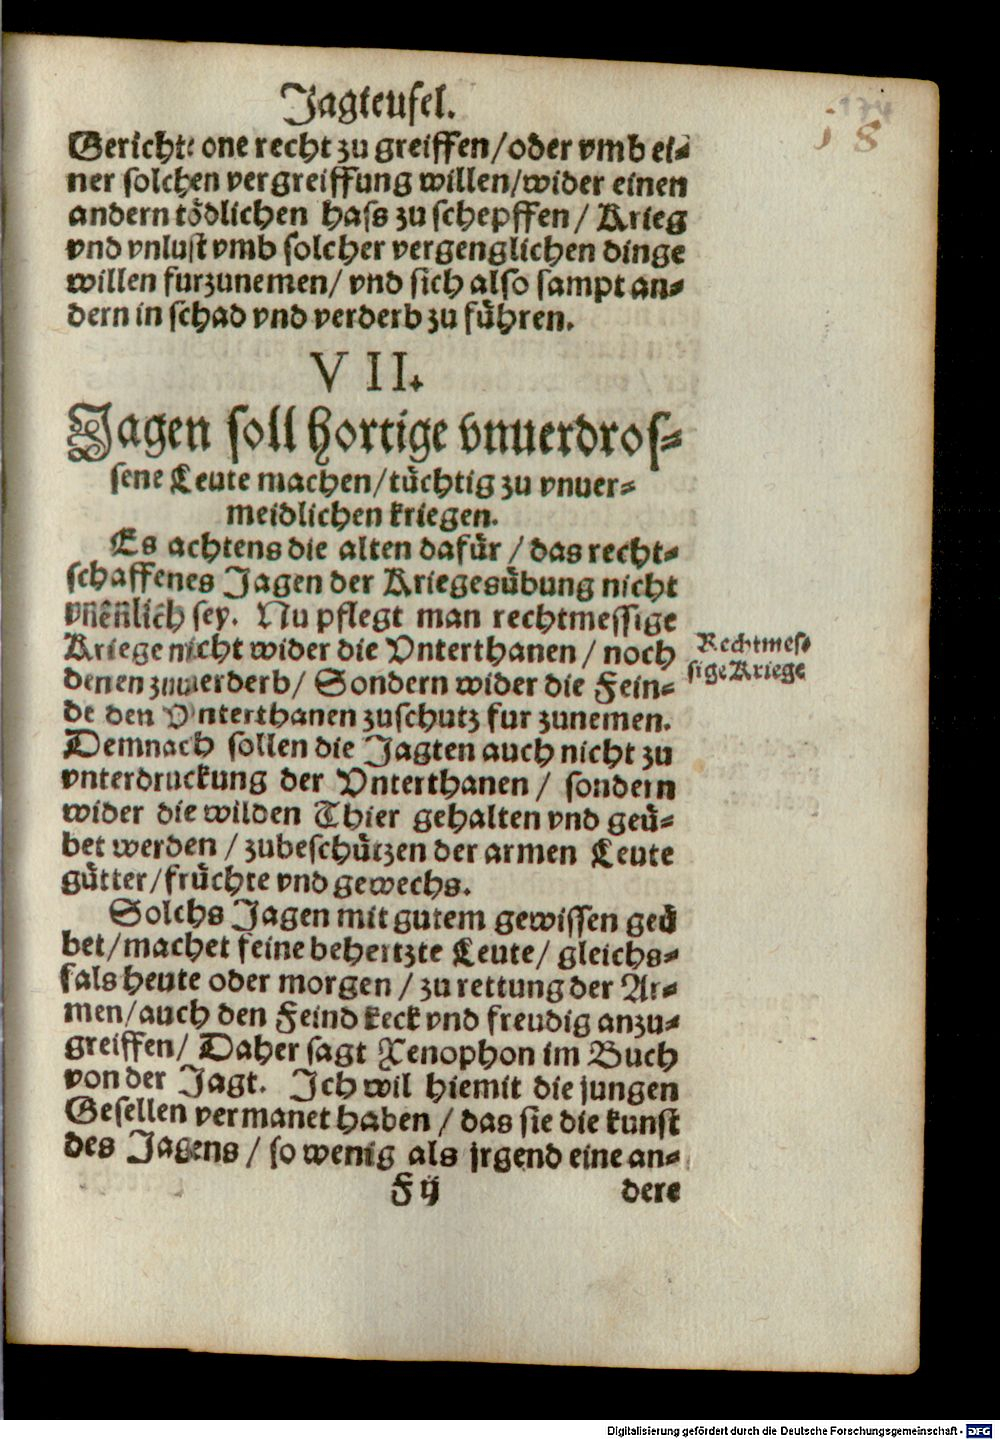 Jagteufel.
174
18
Gericht: one recht zu greiffen/oder vmb ei⸗
ner solchen vergreiffung willen/wider einen
andern tödlichen hass zu schepffen / Krieg
vnd vnlust vmb solcher vergenglichen dinge
willen furzunemen/ vnd sich also sampt an⸗
dern in schad vnd verderb zu führen.
VII.
Jagen soll hortige vnuerdros⸗
sene Leute machen/tüchtig zu vnuer⸗
meidlichen kriegen.
Es achtens die alten dafür / das recht⸗
schaffenes Jagen der Kriegesübung nicht
vnenlich sey. Nu pflegt man rechtmessige
Kriege nicht wider die Vnterthanen / noch
denen zuuerderb/ Sondern wider die Fein⸗
de den Vnterthanen zuschutz fur zunemen.
Demnach sollen die Jagten auch nicht zu
vnterdruckung der Vnterthanen / sondern
wider die wilden Thier gehalten vnd geü⸗
bet werden / zubeschützen der armen Leute
gütter/früchte vnd gewechs.
Rechtmes⸗
sige Kriege
Solchs Jagen mit gutem gewissen geü
bet/machet feine behertzte Leute/ gleichs⸗
fals heute oder morgen / zu rettung der Ar⸗
men/auch den Feind keck vnd freudig anzu⸗
greiffen/ Daher sagt Xenophon im Buch
von der Jagt. Ich wil hiemit die jungen
Gesellen vermanet haben / das sie die kunst
des Jagens / so wenig als jrgend eine an⸗
F ij
dere
Digitalisierung gefördert durch die Deutsche Forschungsgemeinschaft - DFG